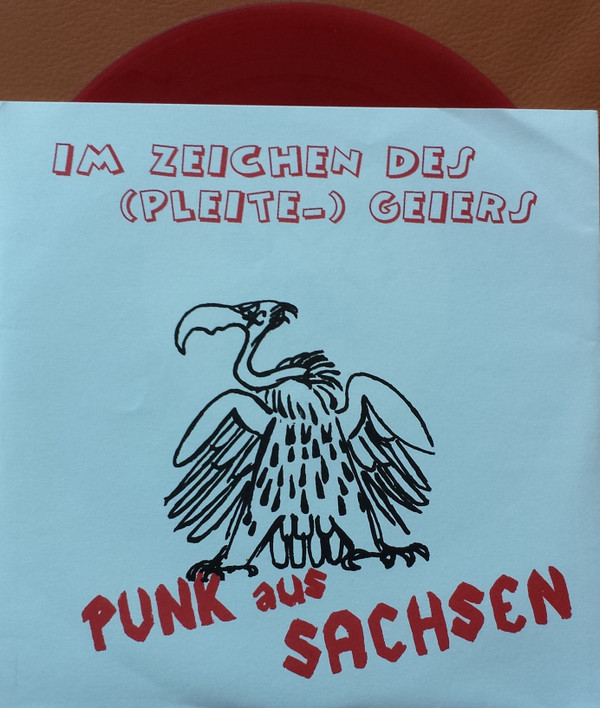 IM ZEICHEN DES
(PLEITE-) GEIERS
PUNK aus
SACHSEN